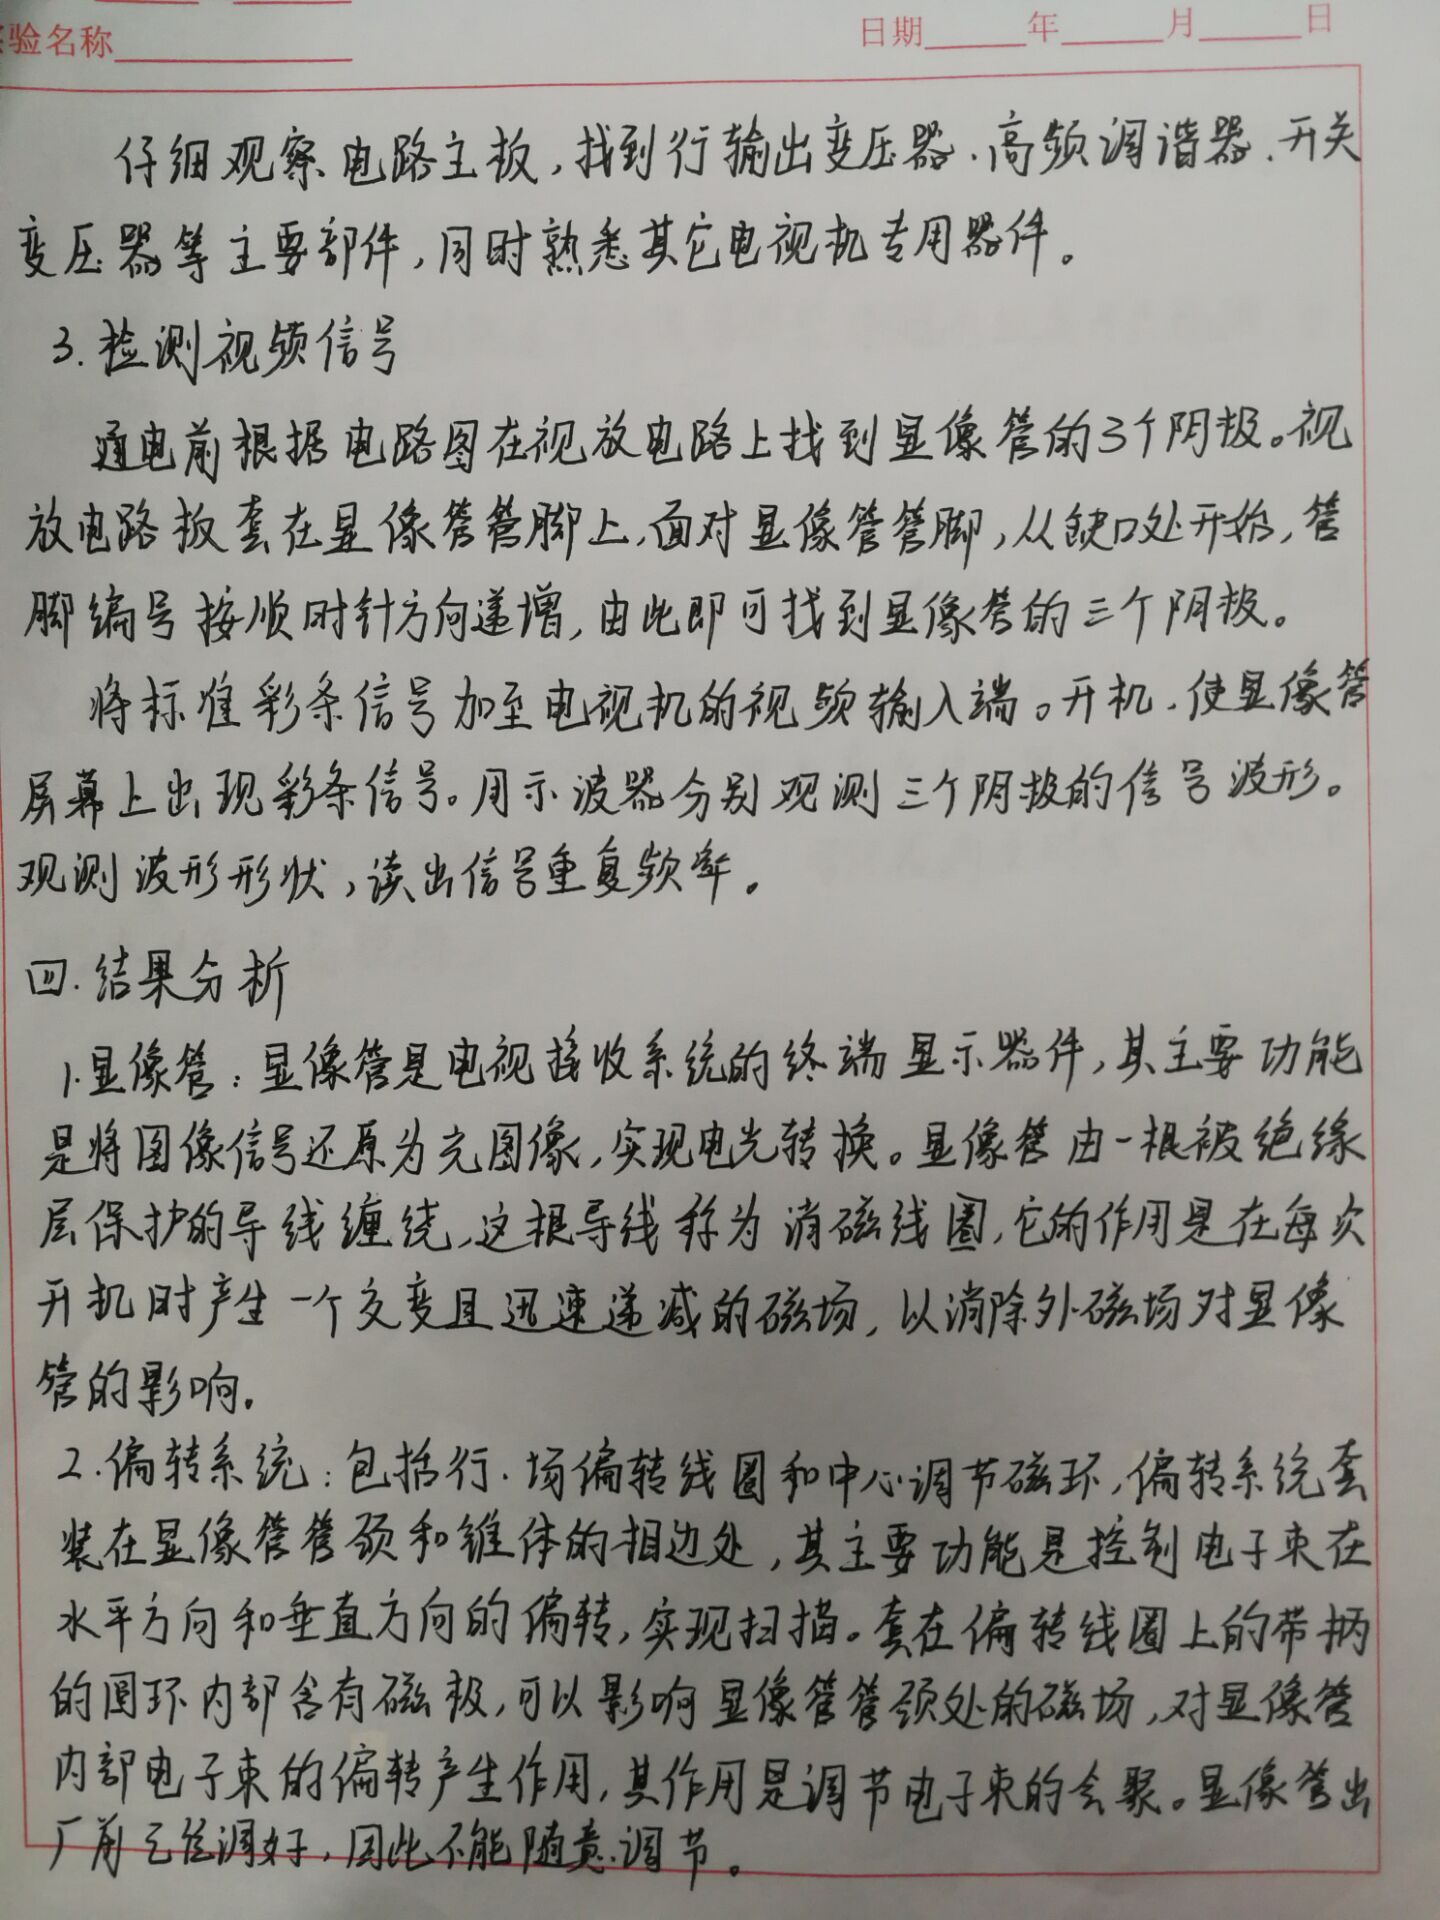 验名称 日期 年 月 日
仔细观察电路主板,找到行输出变压器、高频调谐器、开关
变压器等主要部件,同时熟悉其它电视机专用器件。
3.检测视频信号
通电前根据电路图在视放电路上找到显像管的3个阴极。视
放电路板套在显像管管脚上,面对显像管管脚,从缺口处开始,管
脚编号按顺时针方向递增,由此即可找到显像管的三个阴极。
将标准彩条信号加至电视机的视频输入端。开机,使显像管
屏幕上出现彩条信号。用示波器分别观测三个阴极的信号波形。
观测波形形状,读出信号重复频率。
四.结果分析
1.显像管:显像管是电视接收系统的终端显示器件,其主要功能
是将图像信号还原为光图像,实现电光转换。显像管由一根被绝缘
层保护的导线缠绕,这根导线称为消磁线圈,它的作用是在每次
开机时产生一个交变且迅速递减的磁场,以消除外磁场对显像
管的影响.
2.偏转系统:包括行、场偏转线圈和中心调节磁环,偏转系统套
装在显像管管颈和锥体的相边处,其主要功能是控制电子束在
水平方向和垂直方向的偏转,实现扫描。套在偏转线圈上的带柄
的圆环内部含有磁极,可以影响显像管管颈处的磁场,对显像管
内部电子束的偏转产生作用,其作用是调节电子束的会聚。显像管出
厂前已经调好,因此不能随意调节。